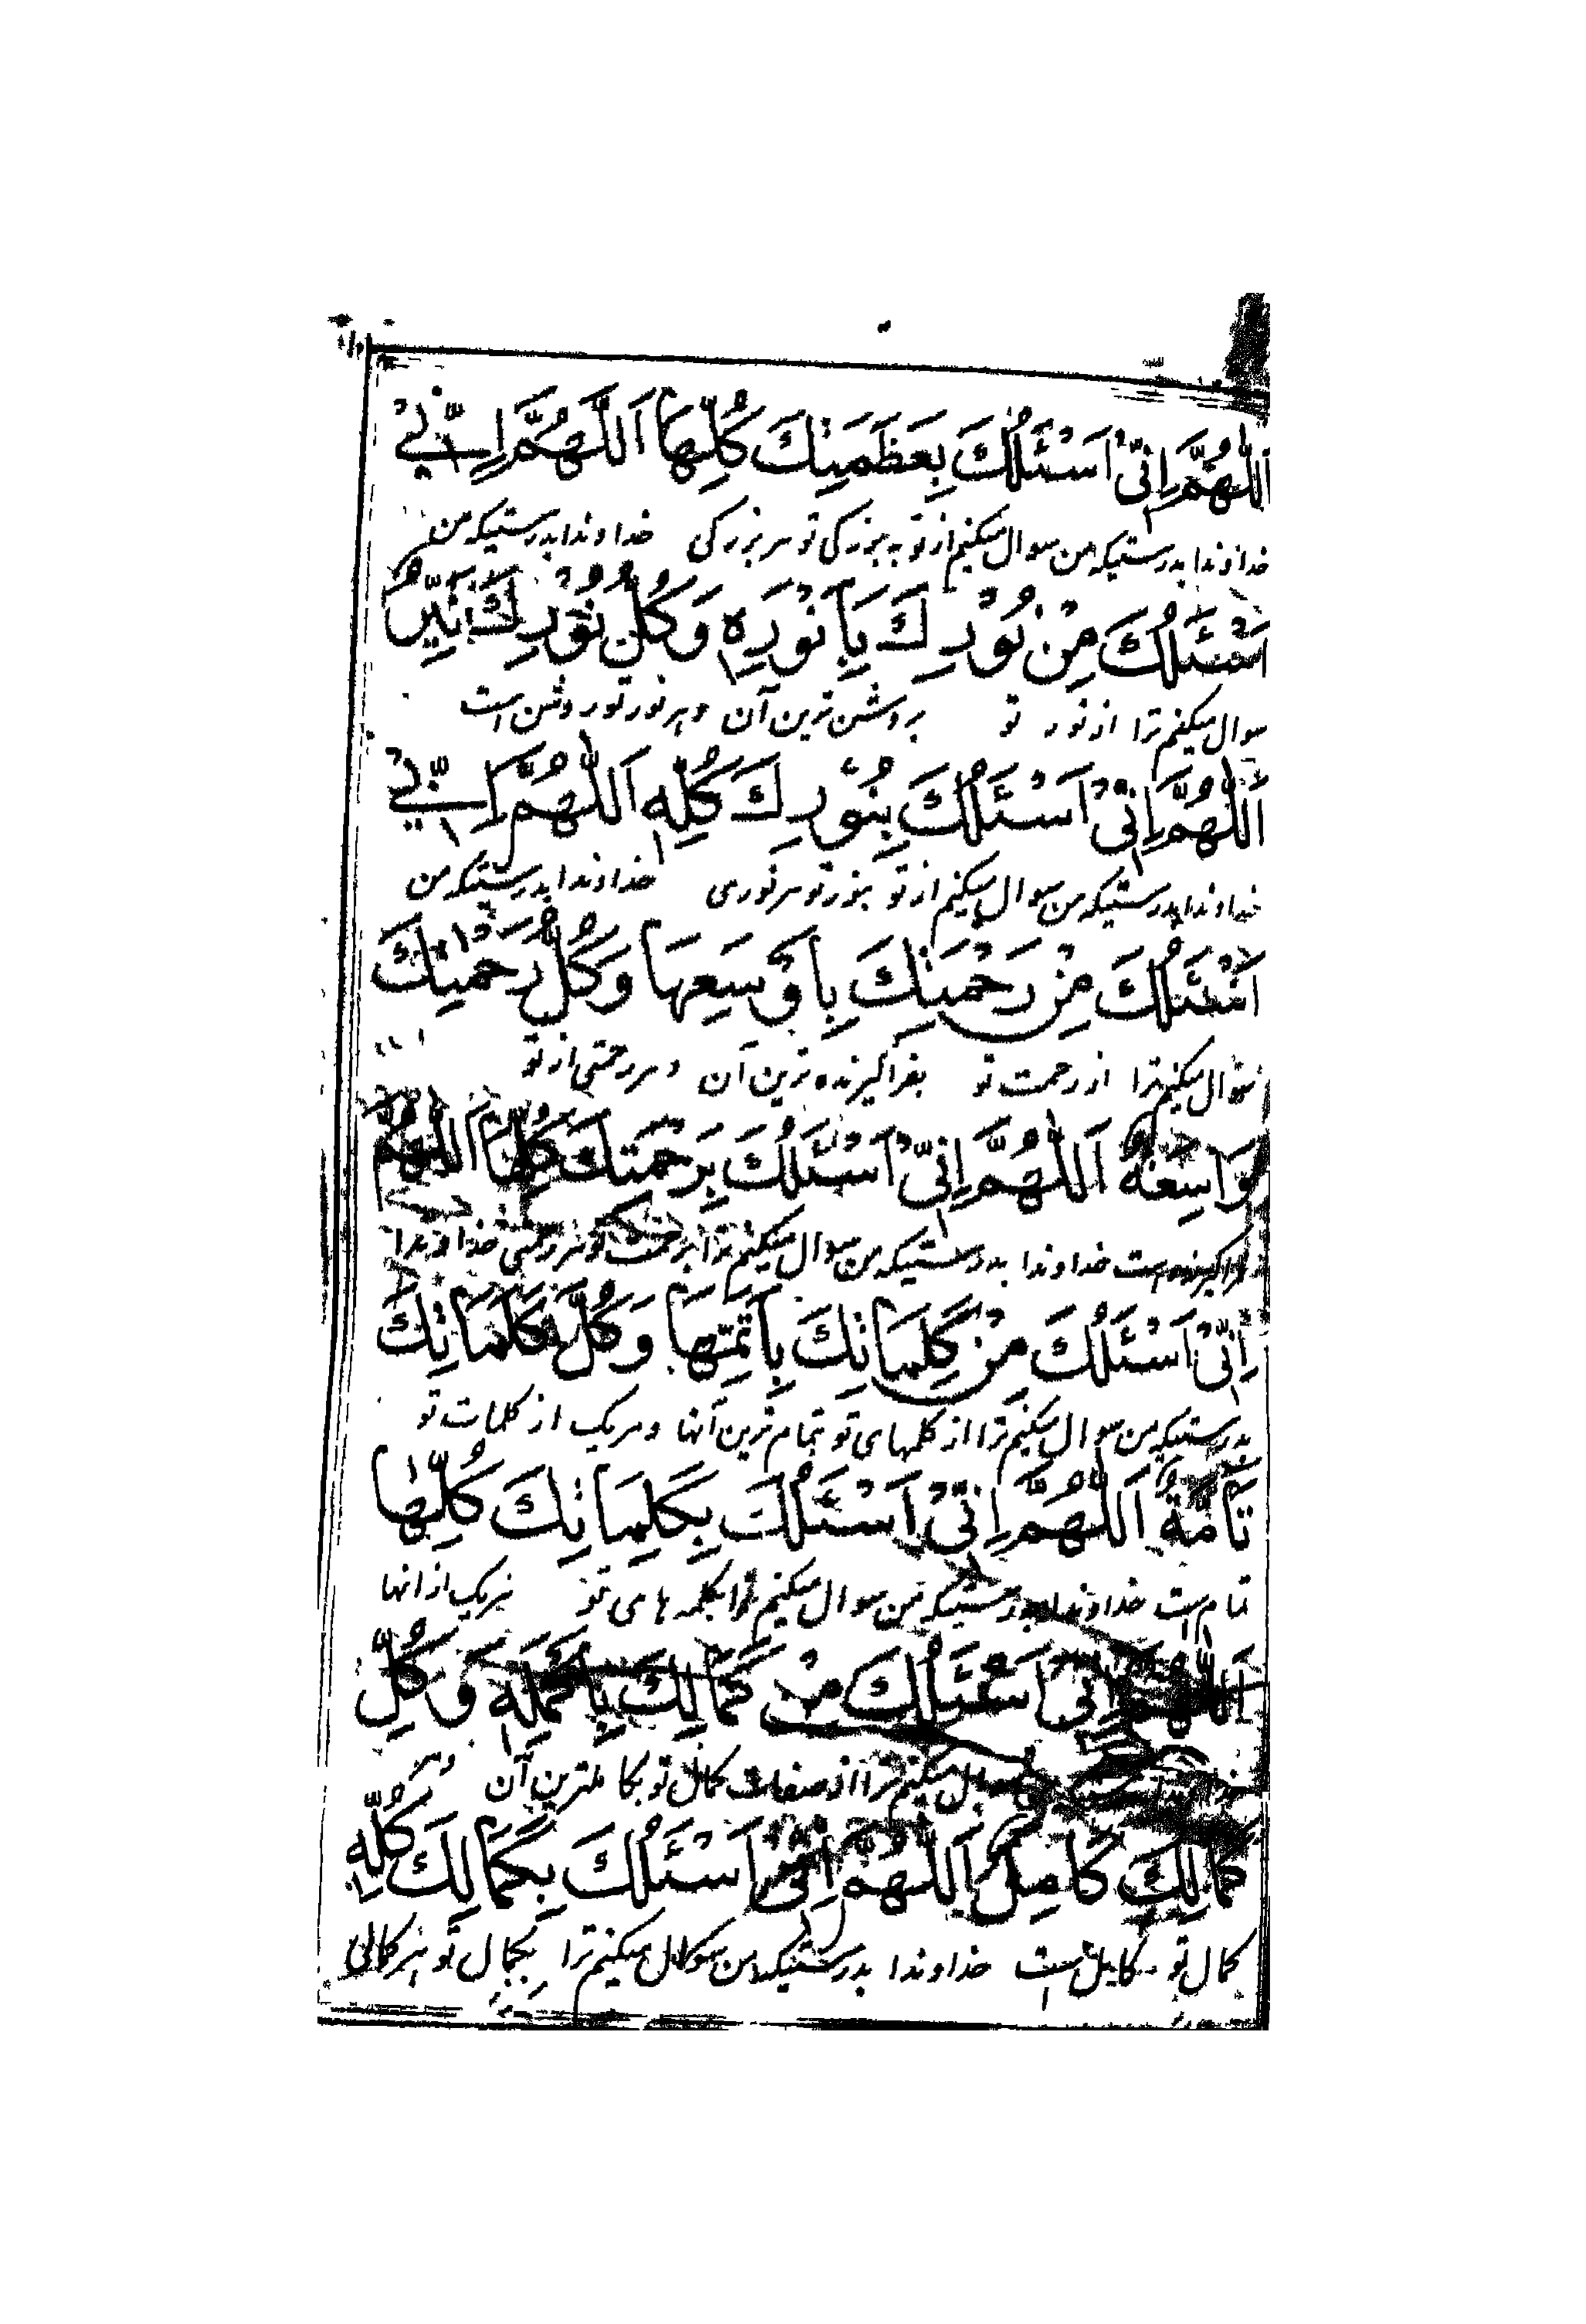 اَللّٰهُمَّ اِنّىْ اَسْئَلُكَ بِعَظَمَتِكَ كُلِّهَا اَللّٰهُمَّ اِنّىْ
خداوندا بدرستیکه من سوال میکنم از تو به بزرکی تو هر بزرکی خداوندا بدرستیکه من
اَسْئَلُكَ مِنْ نُوْرِكَ بِاَنْوَرِهٖ وَكُلُّ نُوْرِكَ نَيِّرٌ
سوال میکنم ترا از نور تو بروشن ترین آن و هر نور تو روشن است
اَللّٰهُمَّ اِنّىْ اَسْئَلُكَ بِنُوْرِكَ كُلِّهٖ اَللّٰهُمَّ اِنّىْ
خداوندا بدرستیکه من سوال میکنم از تو بنور تو هر نوری خداوندا بدرستیکه من
اَسْئَلُكَ مِنْ رَحْمَتِكَ بِاَوْسَعِهَا وَكُلُّ رَحْمَتِكَ
سوال میکنم ترا از رحمت تو بفراکیرنده ترین آن و هر رحمتی از تو
وَاسِعَةٌ اَللّٰهُمَّ اِنّىْ اَسْئَلُكَ بِرَحْمَتِكَ كُلِّهَا اَللّٰهُمَّ
فراکیرنده است خداوندا بدرستیکه من سوال میکنم ترا برحمت تو هر رحمتی خداوندا
اِنّىْ اَسْئَلُكَ مِنْ كَلِمَاتِكَ بِاَتَمِّهَا وَكُلُّ كَلِمَاتِكَ
بدرستیکه من سوال میکنم ترا از کلمهای تو بتمام ترین آنها و هریک از کلمات تو
تَآمَّةٌ اَللّٰهُمَّ اِنّىْ اَسْئَلُكَ بِكَلِمَاتِكَ كُلِّهَا
تمام است خداوندا بدرستیکه من سوال میکنم ترا بکلمه های تو هریک از انها
اَللّٰهُمَّ اِنّىْ اَسْئَلُكَ مِنْ كَمَالِكَ بِاَكْمَلِهٖ وَكُلُّ
سوال میکنم ترا از صفات کمال تو بکاملترین آن و هر
كَمَالِكَ كَامِلٌ اَللّٰهُمَّ اِنّىْ اَسْئَلُكَ بِكَمَالِكَ كُلِّهٖ
کمال تو کامل است خداوندا بدرستیکه من سوال میکنم ترا بکمال تو هر کمالی